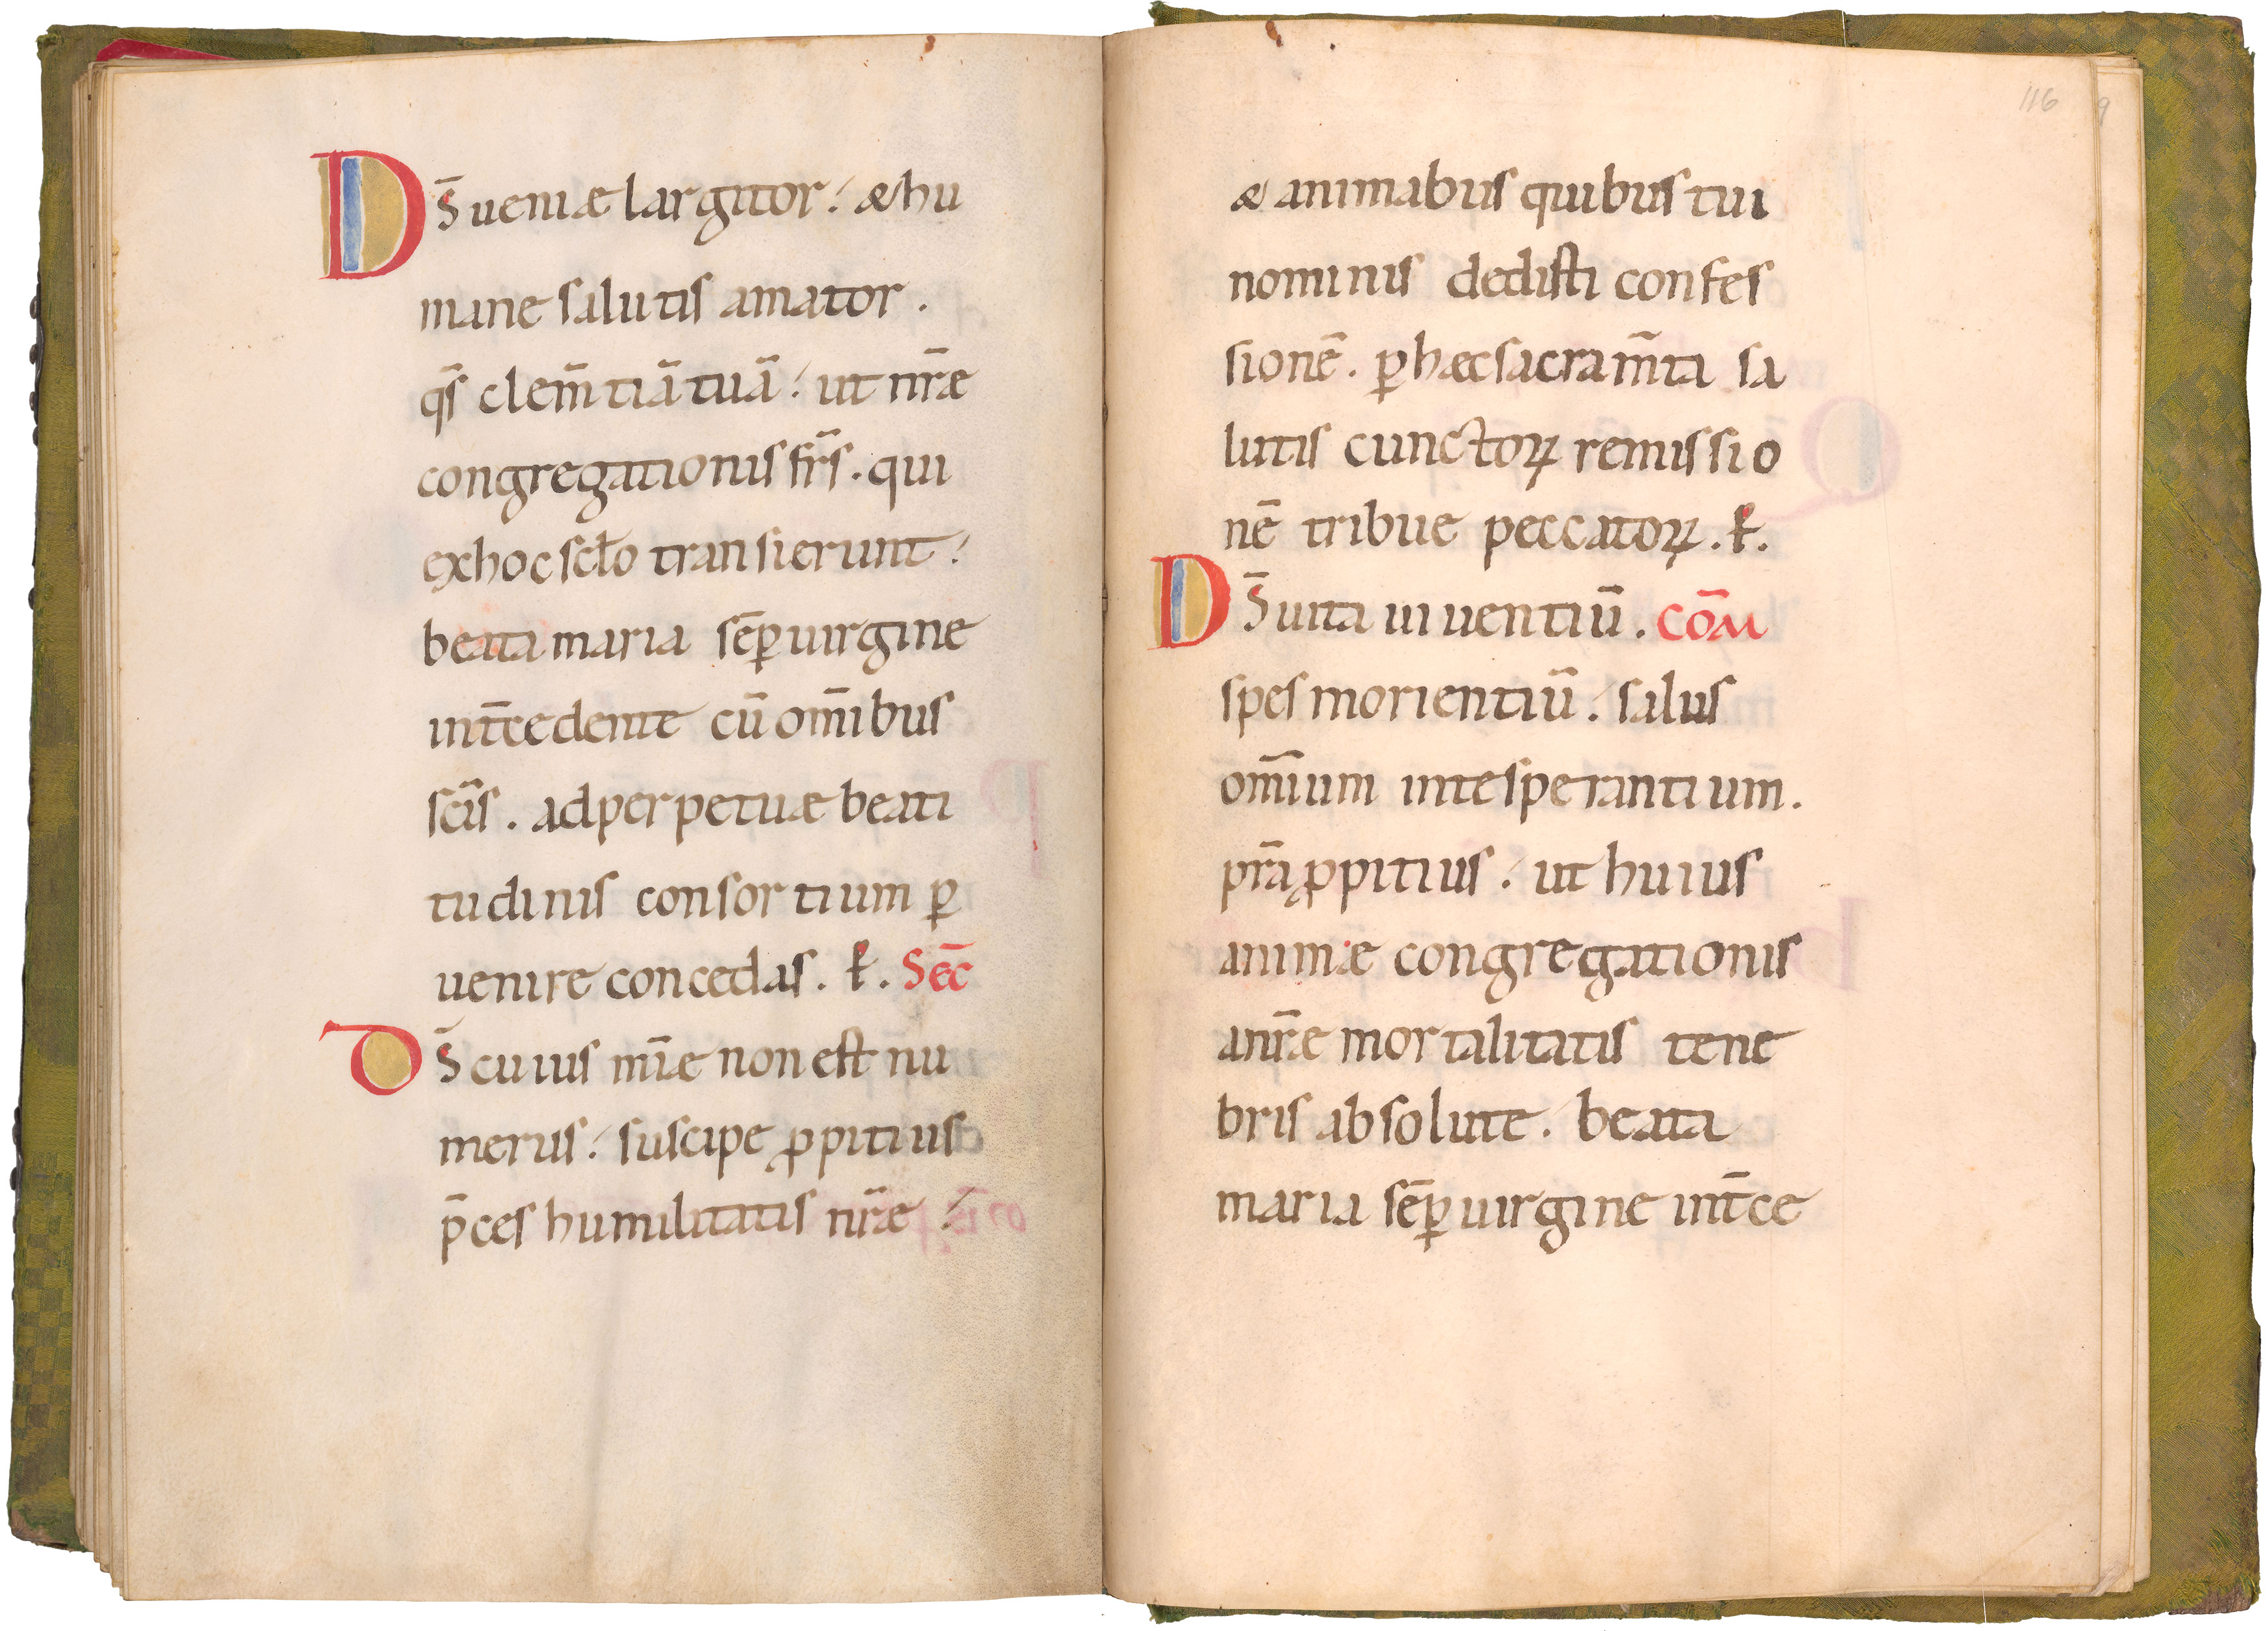 DS̄ ueniæ largitor. & hu
mane salutis amator.
qs̄ clem̄tiā tuā. ut nr̄æ
congregationis fr̄s. qui
ex hoc scło transierunt.
beata maria sēp uirgine
int̄cedente cū om̄ibus
sc̄is. ad perpetuæ beati
tudinis consortium ꝑ
uenire concedas. ꝑ. Sec̄
DS̄ cuius mīæ non est nu
merus. suscipe ꝓpitius
p̄ces humilitatis nr̄æ.
116
9
& animabus quibus tui
nominis dedisti confes
sionē. ꝑ hæc sacram̄ta sa
lutis cunctoꝝ remissio
nē tribue peccatoꝝ. ꝑ.
DS̄ uita uiuentiū. Cōm
spes morientiū. salus
om̄ium in te sperantium.
pr̄a ꝓpitius. ut huius
animæ congregationis
a nr̄æ mortalitatis tene
bris absolute. beata
maria sēꝑ uirgine int̄ce